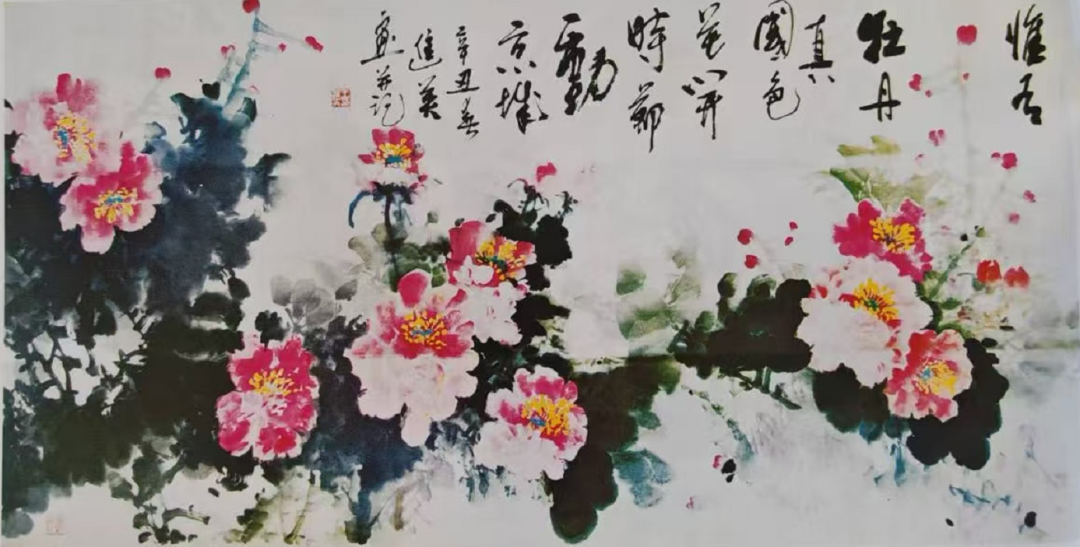 惟有
牡丹
真
國色
花開
時節
動
京城
辛丑春
進美
畫并記